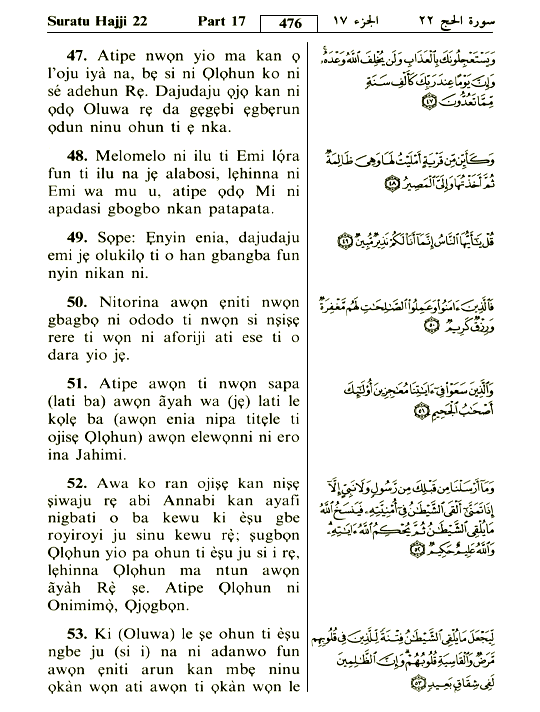 Suratu Hajji 22 Part 17 476 الجزء ١٧ سورة الحج ٢٢
47. Atipe nwọn yio ma kan ọ
l'oju iyà na, bẹ si ni Ọlọhun ko ni
sé adehun Rẹ. Dajudaju ọjọ kan ni
ọdọ Oluwa rẹ da gẹgẹbi ẹgbẹrun
ọdun ninu ohun ti ẹ nka.
48. Melomelo ni ilu ti Emi lọ́ra
fun ti ilu na jẹ alabosi, lẹhinna ni
Emi wa mu u, atipe ọdọ Mi ni
apadasi gbogbo nkan patapata.
49. Sọpe: Ẹnyin enia, dajudaju
emi jẹ olukilọ ti o han gbangba fun
nyin nikan ni.
50. Nitorina awọn ẹniti nwọn
gbagbọ ni ododo ti nwọn si nṣiṣẹ
rere ti wọn ni aforiji ati ese ti o
dara yio jẹ.
51. Atipe awọn ti nwọn sapa
(lati ba) awọn ãyah wa (jẹ) lati le
kọlẹ ba (awọn enia nipa titẹle ti
ojisẹ Ọlọhun) awọn elewọnni ni ero
ina Jahimi.
52. Awa ko ran ojiṣẹ kan niṣẹ
ṣiwaju rẹ abi Annabi kan ayafi
nigbati o ba kewu ki èṣu gbe
royiroyi ju sinu kewu rẹ̀; ṣugbọn
Ọlọhun yio pa ohun ti èṣu ju si i rẹ,
lẹhinna Ọlọhun ma ntun awọn
ãyàh Rẹ̀ ṣe. Atipe Ọlọhun ni
Onimimọ̀, Ọjọgbọn.
53. Ki (Oluwa) le ṣe ohun ti èṣu
ngbe ju (si i) na ni adanwo fun
awọn ẹniti arun kan mbẹ ninu
ọkàn wọn ati awọn ti ọkàn wọn le
وَيَسْتَعْجِلُونَكَ بِالْعَذَابِ وَلَن يُخْلِفَ اللَّهُ وَعْدَهُ
وَإِنَّ يَوْمًا عِندَ رَبِّكَ كَأَلْفِ سَنَةٍ
مِّمَّا تَعُدُّونَ ٤٧
وَكَأَيِّن مِّن قَرْيَةٍ أَمْلَيْتُ لَهَا وَهِيَ ظَالِمَةٌ
ثُمَّ أَخَذْتُهَا وَإِلَيَّ الْمَصِيرُ ٤٨
قُلْ يَٰٓأَيُّهَا النَّاسُ إِنَّمَا أَنَا لَكُمْ نَذِيرٌ مُّبِينٌ ٤٩
فَالَّذِينَ ءَامَنُوا وَعَمِلُوا الصَّٰلِحَٰتِ لَهُم مَّغْفِرَةٌ
وَرِزْقٌ كَرِيمٌ ٥٠
وَالَّذِينَ سَعَوْا فِي ءَايَٰتِنَا مُعَٰجِزِينَ أُو۟لَٰٓئِكَ
أَصْحَٰبُ الْجَحِيمِ ٥١
وَمَا أَرْسَلْنَا مِن قَبْلِكَ مِن رَّسُولٍ وَلَا نَبِيٍّ إِلَّا
إِذَا تَمَنَّىٰ أَلْقَى الشَّيْطَٰنُ فِي أُمْنِيَّتِهِ فَيَنسَخُ اللَّهُ
مَا يُلْقِي الشَّيْطَٰنُ ثُمَّ يُحْكِمُ اللَّهُ ءَايَٰتِهِ
وَاللَّهُ عَلِيمٌ حَكِيمٌ ٥٢
لِّيَجْعَلَ مَا يُلْقِي الشَّيْطَٰنُ فِتْنَةً لِّلَّذِينَ فِي قُلُوبِهِم
مَّرَضٌ وَالْقَاسِيَةِ قُلُوبُهُمْ وَإِنَّ الظَّٰلِمِينَ
لَفِي شِقَاقٍ بَعِيدٍ ٥٣